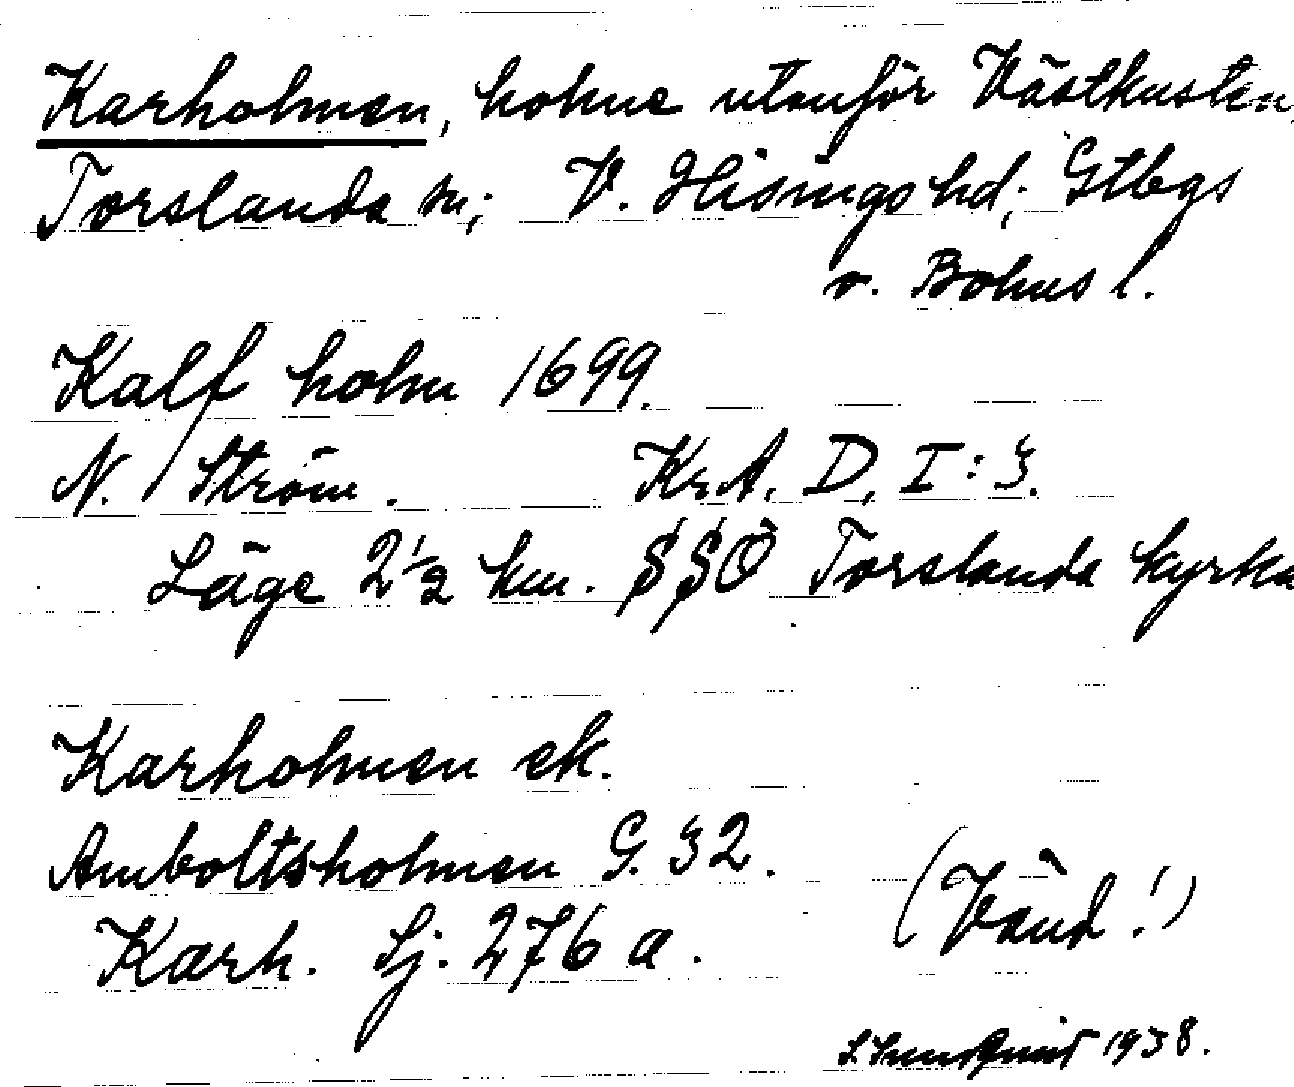 Karholmen, holme utanför Västkusten,
Torslanda sn; V. Hisings hd; Gtbgs
o. Bohus l.
Kalf holm 1699.
N. Ström. Kr.A. D, I : 3.
Läge 2½ km. SSÖ Torslanda kyrka
Karholmen ek.
Amboltsholmen G. 32.
Karh. Sj. 276 a.
(Vänd!)
1938.